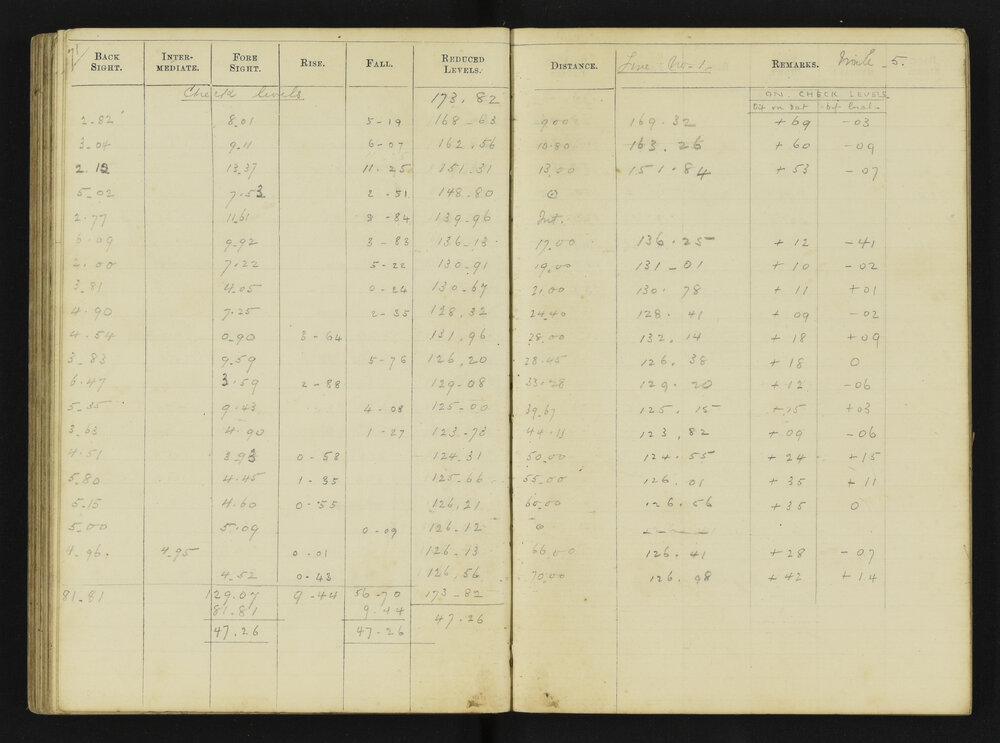 71
BACK SIGHT. INTER-MEDIATE. FORE SIGHT. RISE. FALL. REDUCED LEVELS. DISTANCE. Line No 1 REMARKS. Mile 5.
Check levels 173.82 ON CHECK LEVELS
Dif on Dat
2.82 8.01 5-19 168-63 9.00 169.32 +69 -03
3-04 9.11 6-07 162.56 10.80 163.26 +60 -09
13.37 11.25 151.31 13.00 151.84 +53 -07
5-02 7.53 2.51 148.80 ⊙
2.77 11.61 8-84 139-96 Int.
6.09 9.92 3-83 136-13 17.00 136.25 +12 -41
2.00 7.22 5-22 130.91 19.00 131-01 +10 -02
3.81 4.05 0-24 130-67 21.00 130.78 +11 +01
4.90 7.25 2-35 128.32 24.40 128.41 +09 -02
4.54 0.90 3-64 131.96 28.00 132.14 +18 +09
3.83 9.59 5-76 126.20 28.45 126.38 +18 0
6.47 3.59 2-88 129-08 33.28 129.20 +12 -06
5.35 9.43 4-08 125-00 39.67 125.15 +15 +03
3.63 4.90 1-27 123-73 44.11 123.82 +09 -06
4.51 3.93 0-58 124.31 50.00 124.55 +24 +15
5.80 4.45 1-35 125-66 55.00 126.01 +35 +11
5.15 4.60 0-55 126.21 60.00 126.56 +35 0
5.00 5.09 0-09 126.12 ⊙
4.96. 4.95 0.01 126-13 66.00 126.41 +28 -07
4.52 0-43 126.56 70.00 126.98 +42 +14
81.81 129.07 9-44 56-70 173-82
81.81 9.44 47.26
47.26 47-26